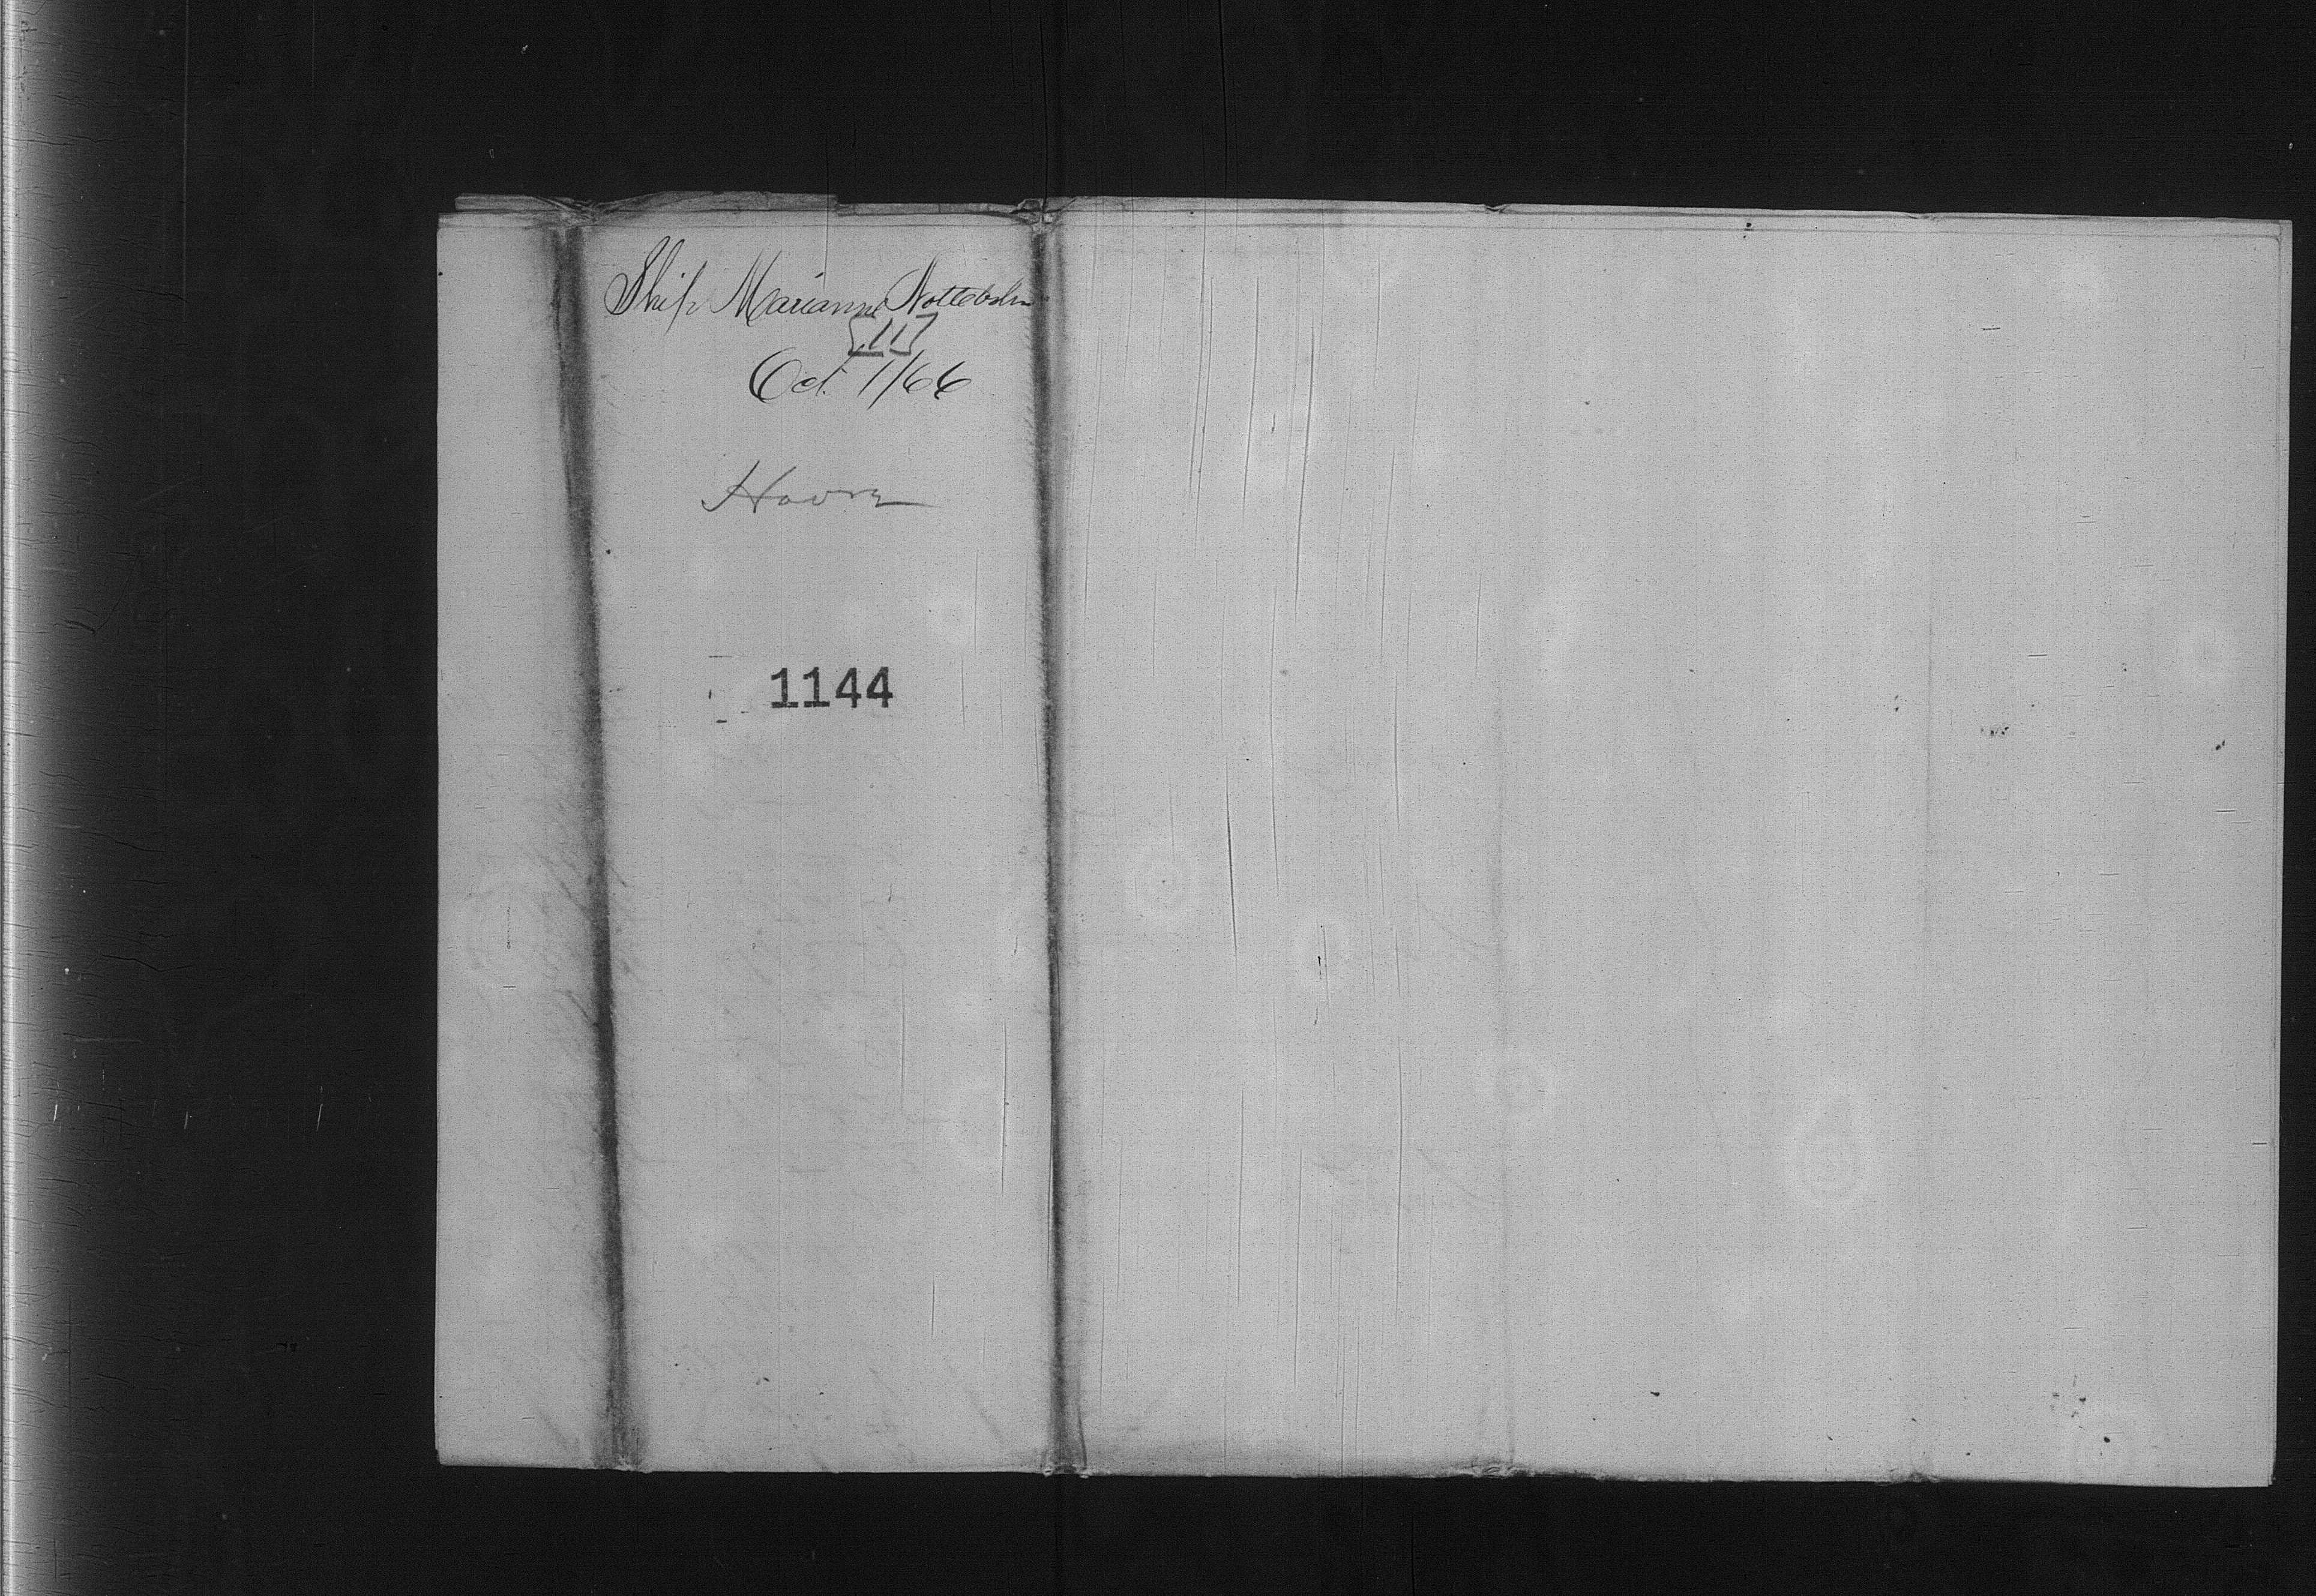 Ship Marianne Nottebohm
[11]
Oct. 1/66
Havre
1144